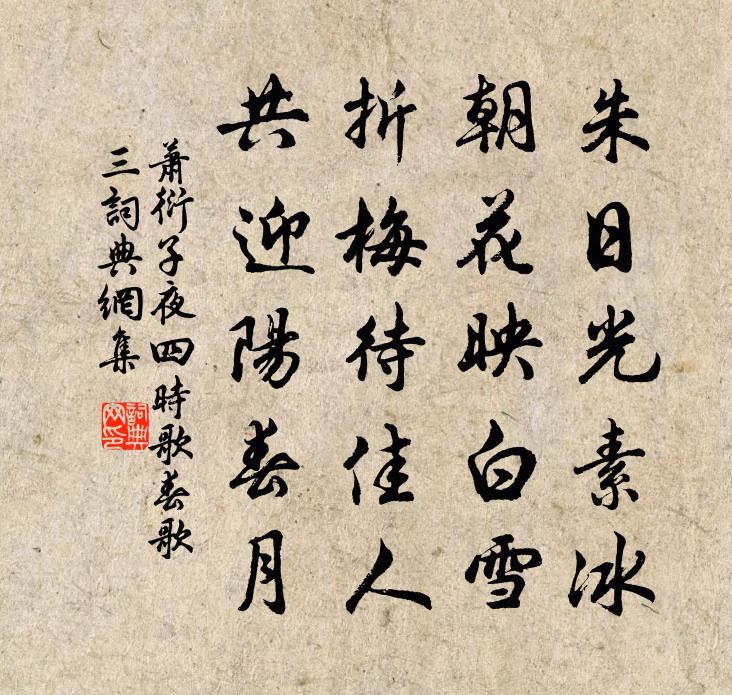 朱日光素冰
朝花映白雪
折梅待佳人
共迎陽春月
蕭衍子夜四時歌春歌
三詞典網集
詞典
网印